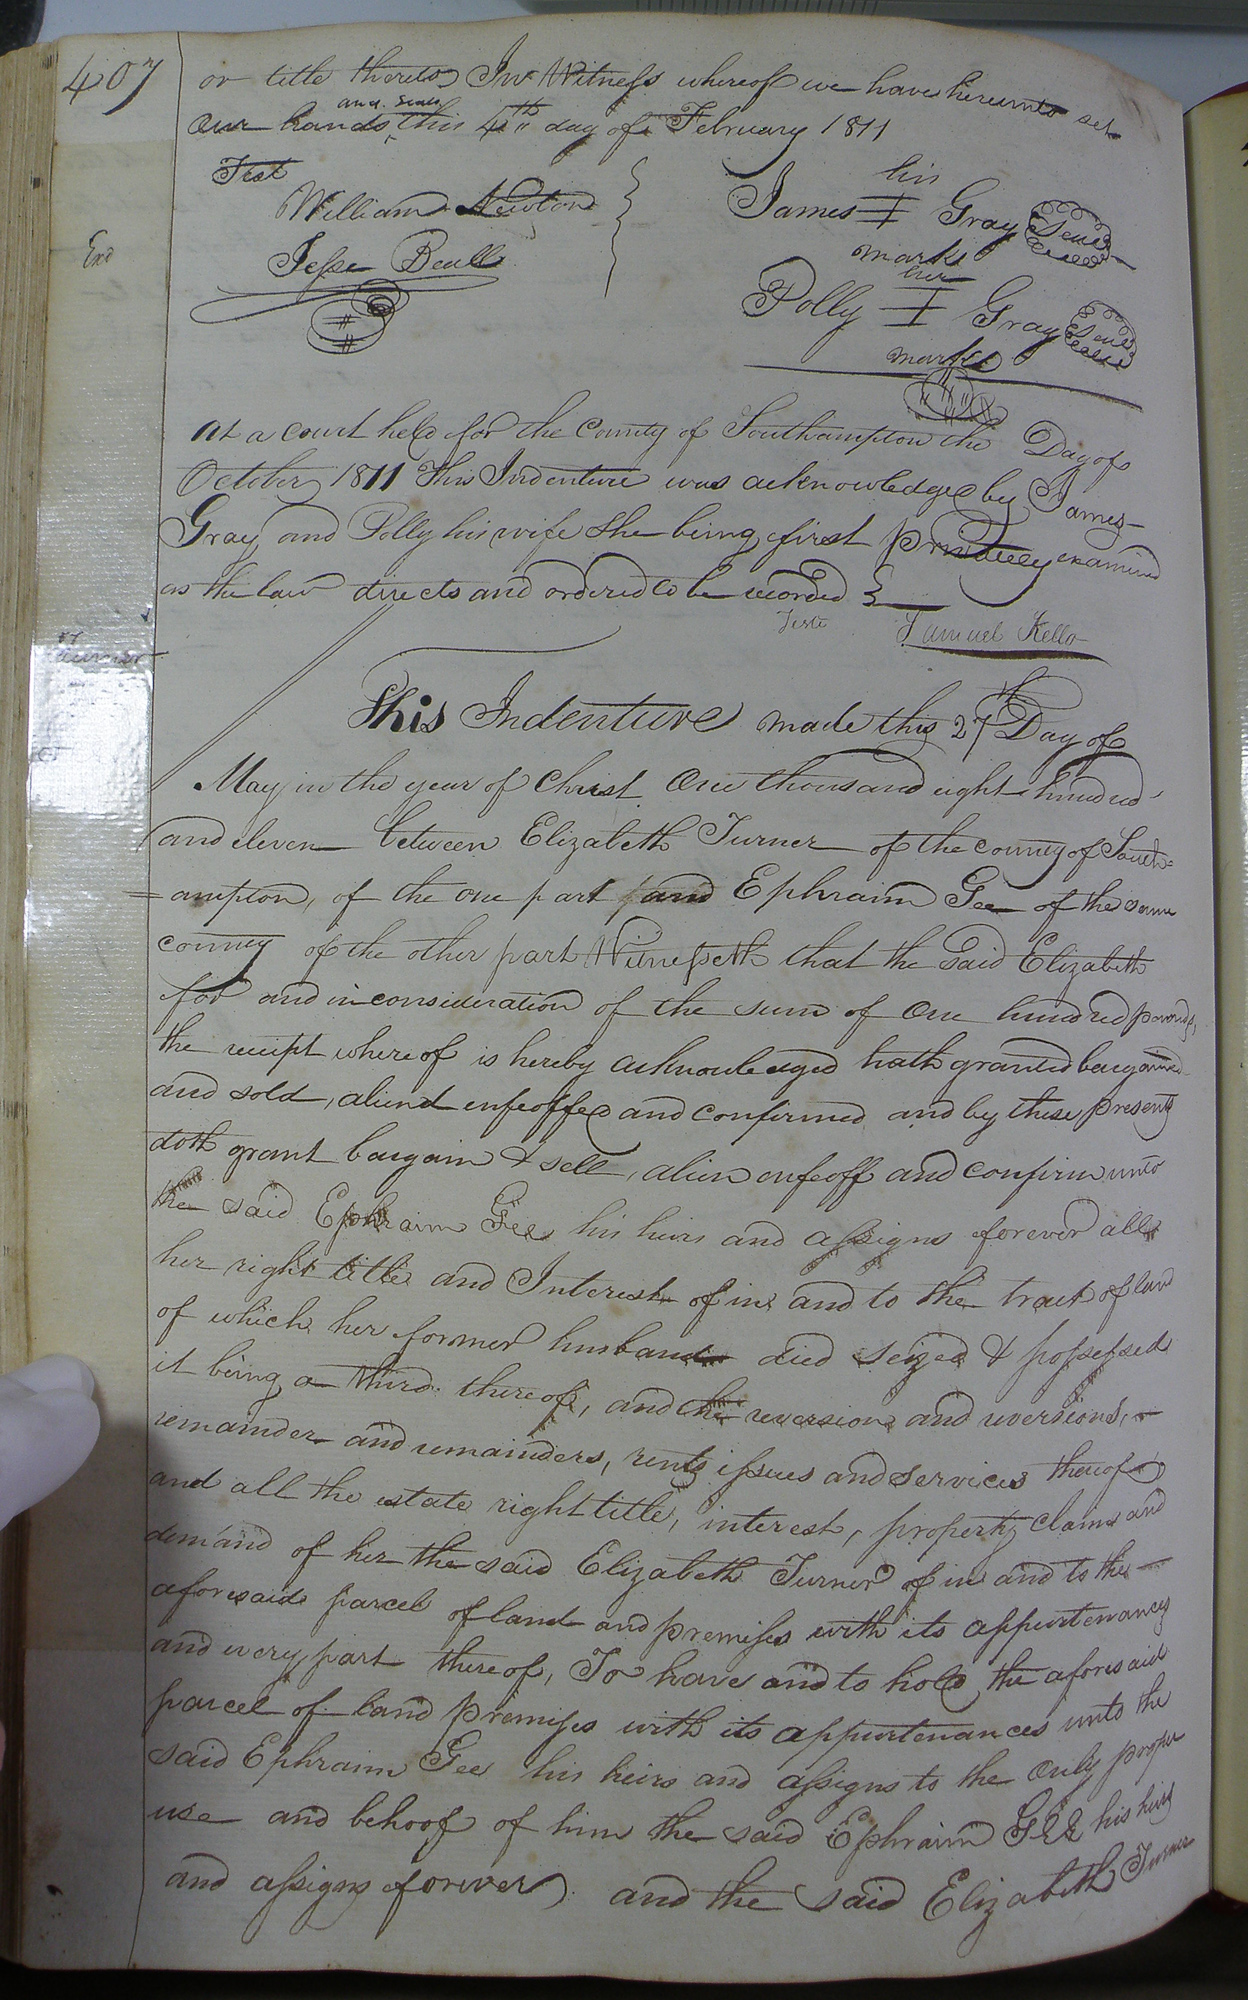 407
or title thereto, In Witness whereof we have hereunto set
and seals
our hands this 4th day of February 1811
Test
William Newton
Jesse Beall
End
his
James I Gray Seal
mark
her
Polly I Gray Seal
mark
At a court held for the County of Southampton the Day of
October 1811 This Indenture was acknowledged by James
Gray and Polly his wife she being first privately examined
as the law directs and ordered to be recorded
Teste Samuel Kello
This Indenture made this 27th Day of
May in the year of Christ One thousand eight hundred
and eleven between Elizabeth Turner of the county of South=
=ampton, of the one part and Ephraim Gee of the same
county of the other part Witnesseth that the said Elizabeth
for and in consideration of the sum of One hundred pounds,
the receipt whereof is hereby acknowledged hath granted bargained
and sold, aliend enfeoffed and confirmed and by these presents
doth grant bargain & sell, alien enfeoff and confirm unto
the said Ephraim Gee his heirs and assigns forever all
her right title and Interest of in and to the tract of land
of which her former husband died seized & possessed
it being a third thereof, and the reversion and reversions,
remainder and remainders, rents issues and services thereof
and all the estate right title, interest, property claim and
demand of her the said Elizabeth Turner of in and to the
aforesaid parcel of land and premises with its appurtenances
and every part thereof, To have and to hold the aforesaid
parcel of land premises with its appurtenances unto the
said Ephraim Gee his heirs and assigns to the only proper
use and behoof of him the said Ephraim Gee his heirs
and assigns forever and the said Elizabeth Turner